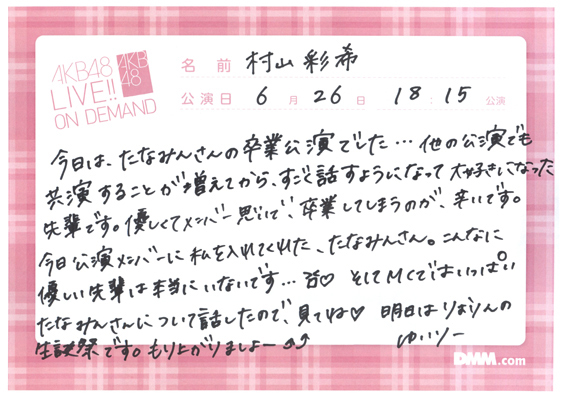 AKB48
LIVE!!
ON DEMAND
AKB
48
名前 村山彩希
公演日 6月26日 18:15公演
今日は、たなみんさんの卒業公演でした…他の公演でも
共演することが増えてから、すごく話すようになって大好きになった
先輩です。優しくてメンバー思いで、卒業してしまうのが、辛いです。
今日公演メンバーに私を入れてくれた、たなみんさん。こんなに
優しい先輩は本当にいないです…
♡ そしてMCではいっぱい
たなみんさんについて話したので、見てね♡ 明日はりおりんの
生誕祭です。もり上がりましょー⤴⤴
ゆいりー
DMM.com